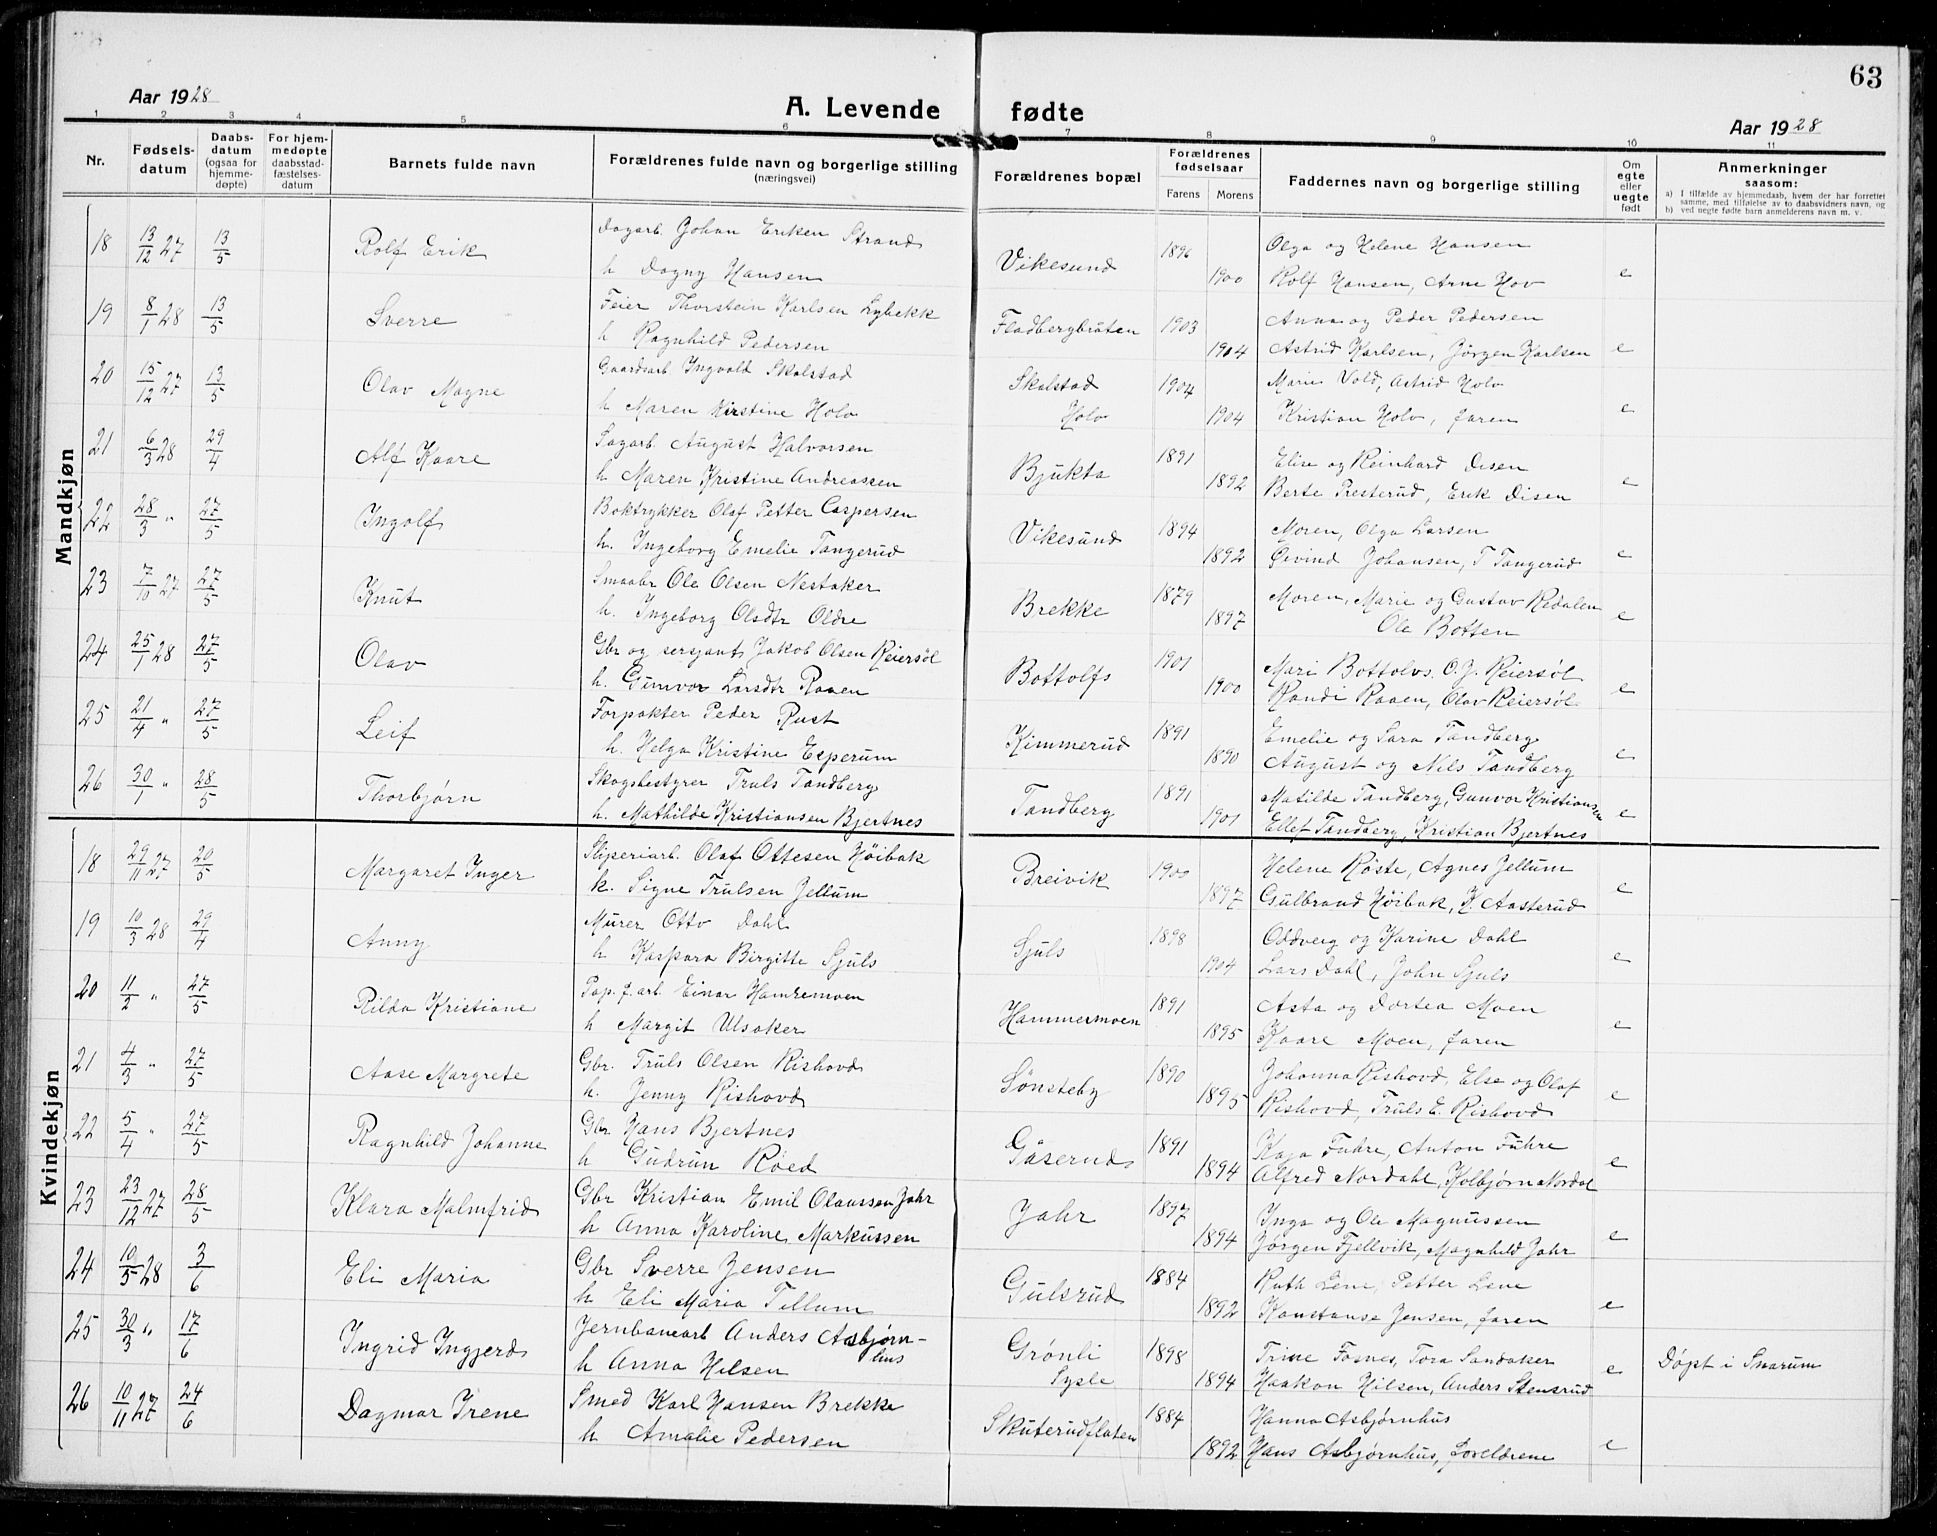 63
Aar 1928
A. Levende fødte
Aar 1928
1 2 3 4 5 6 7 8 9 10 11
Nr. Fødselsdatum Daabsdatum (ogsaa for hjemmedøpte) For hjemmedøpte daabsstadfæstelsesdatum Barnets fulde navn Forældrenes fulde navn og borgerlige stilling (næringsvei) Forældrenes bopæl Forældrenes fødselsaar Farens Morens Faddernes navn og borgerlige stilling Om egte eller uegte født Anmerkninger saasom:
a) I tilfælde av hjemmedaab, hvem der har forrettet samme, med tilføielse av to daabsvidners navn, og
b) ved uegte fødte barn anmelderens navn m. v.
Mandkjøn
18 13/12 27 13/5 Rolf Erik Dagarb. Johan Eriksen Strand Vikesund 1896 Olga og Helene Hansen
h Dagny Hansen 1900 Rolf Hansen, Arne Hov e
19 8/1 28 13/5 Sverre Feier Thorstein Karlsen Lybekk Fladbergbråten 1903 Anna og Peder Pedersen
h Ragnhild Pedersen 1904 Astrid Karlsen, Jörgen Karlsen e
20 15/12 27 13/5 Olav Magne Gaardsarb Ingvald Skalstad Skalstad 1904 Marie Vold, Astrid Holv
h Maren Kirstine Holv Holv 1904 Kristian Holv, faren e
21 6/3 28 29/4 Alf Kaare Sagarb. August Halvorsen Bjukta 1891 Elise og Reinhard Disen
h Maren Kristine Andreassen 1892 Berte Presterud, Erik Disen e
22 28/3 " 27/5 Ingolf Boktrykker Olaf Petter Caspersen Vikesund 1894 Moren, Olga Larsen
h. Ingeborg Emelie Tangerud 1892 Øivind Johansen, T Tangerud e
23 7/10 27 27/5 Knut Smaabr Ole Olsen Nestaker Brekke 1879 Moren, Marie og Gustav Redalen
h. Ingeborg Olsdtr Oldre 1897 Ole Botten e
24 25/1 28 27/5 Olav Gbr og sersjant Jakob Olsen Reiersøl Bottolfs 1901 Mari Bottolvs. O. J. Reiersøl
h. Gunvor Larsdtr Raaen 1900 Randi Raaen, Olav Reiersøl e
25 21/4 " 27/5 Leif Forpakter Peder Rust Kimmerud 1891 Emelie og Sara Tandberg
h. Helga Kristine Esperum 1890 August og Nils Tandberg e
26 30/1 " 28/5 Thorbjørn Skogsbestyrer Truls Tandberg Tandberg 1891 Matilde Tandberg, Gunvor Kristiansen
h. Mathilde Kristiansen Bjertnes 1901 Ellef Tandberg, Kristian Bjertnes e
Kvindekjøn
18 29/11 27 20/5 Margaret Inger Sliperiarb. Olaf Ottesen Høibak Breivik 1900 Helene Røste, Agnes Jellum
k. Signe Trulsen Jellum 1897 Gulbrand Høibak, K. Aasterud e
19 10/3 28 29/4 Anny Murer Otto Dahl Sjuls 1898 Oddveig og Karine Dahl
h Kaspara Birgitte Sjuls 1904 Lars Dahl, John Sjuls e
20 11/2 " 27/5 Rilda Kristiane Pap. f. arb. Einar Hamremoen Hammermoen 1891 Asta og Dortea Moen
h Margit Ulsaker 1895 Kaare Moen, faren e
21 4/3 " 27/5 Aase Margrete Gbr. Truls Olsen Rishovd Sønsteby 1890 Johanna Rishovd, Else og Olaf
h. Jenny Rishovd 1895 Rishovd, Truls E. Rishovd e
22 5/4 " 27/5 Ragnhild Johanne Gbr Hans Bjertnes Gåserud 1891 Kaja Fuhre, Anton Fuhre
h Gudrun Røed 1894 Alfred Nordahl, Kolbjørn Nordal e
23 23/12 27 28/5 Klara Malmfrid Gbr Kristian Emil Olaussen Jahr Jahr 1897 Inga og Ole Magnussen
h Anna Karoline Markussen 1894 Jørgen Fjellvik, Magnhild Jahr e
24 10/5 28 3/6 Eli Maria Gbr Sverre Jensen Gulsrud 1884 Ruth Lene, Petter Lene
h Eli Maria Tillum 1892 Konstanse Jensen, faren e
25 30/3 " 17/6 Ingrid Ingjerd Jernbanearb Anders Asbjørnhus Grønli 1898 Trine Fosnes, Tora Sandaker
h Anna Hilsen Sysle 1894 Haakon Hilsen, Anders Stensrud e Døpt i Snarum
26 10/11 27 24/6 Dagmar Irene Smed Karl Hansen Brekke Skuterudflaten 1884 Hanna Asbjørnhus
h Amalie Pedersen 1892 Hans Asbjørnhus, foreldrene e